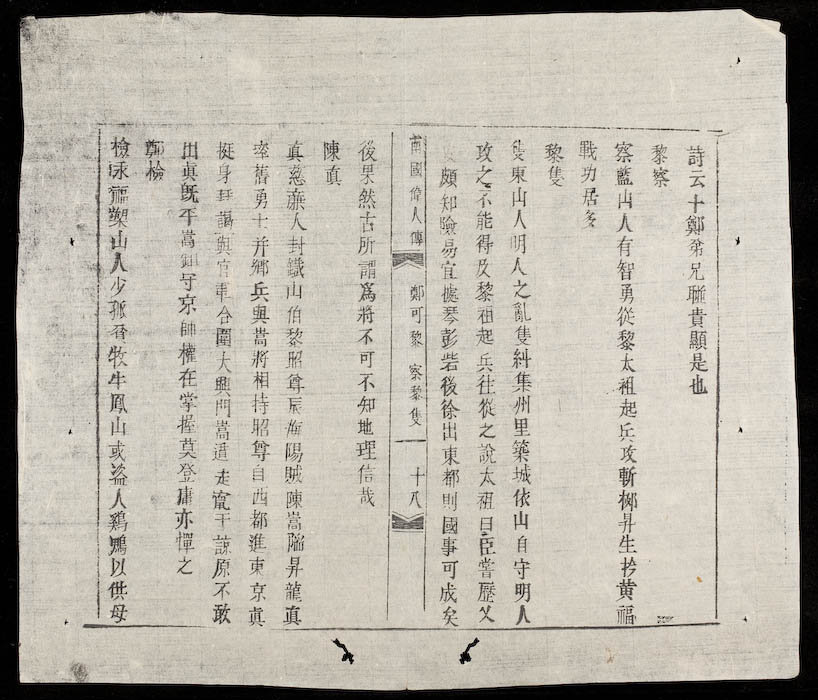 詩云十鄭弟兄聯貴顯是也
黎察
察藍山人有智勇從黎太祖起兵攻斬柳昇生拎黄福
戰功居多
黎隻
隻東山人明人之亂隻糾集州里築城依山自守明人
攻之不能得及黎祖起兵往從之說太祖曰臣嘗歷乂
頗知險易宜據琴彭砦後徐出東都則國事可成矣
南國偉人傳 鄭可黎 察黎隻 十八
後果然古所謂爲將不可不知地理信哉
陳真
真慈廉人封鐵山伯黎昭尊辰海陽賊陳暠陷昇龍真
率舊勇士并鄉兵與暠將相持昭尊自西都進東京真
挺身拜謁與官軍合圍大興門暠遁走竄于諒原不敢
出真旣平暠鎮守京師權在掌握莫登庸亦憚之
鄭檢
檢永福槊山人少孤窘牧牛鳳山或盜人鷄鴨以供母